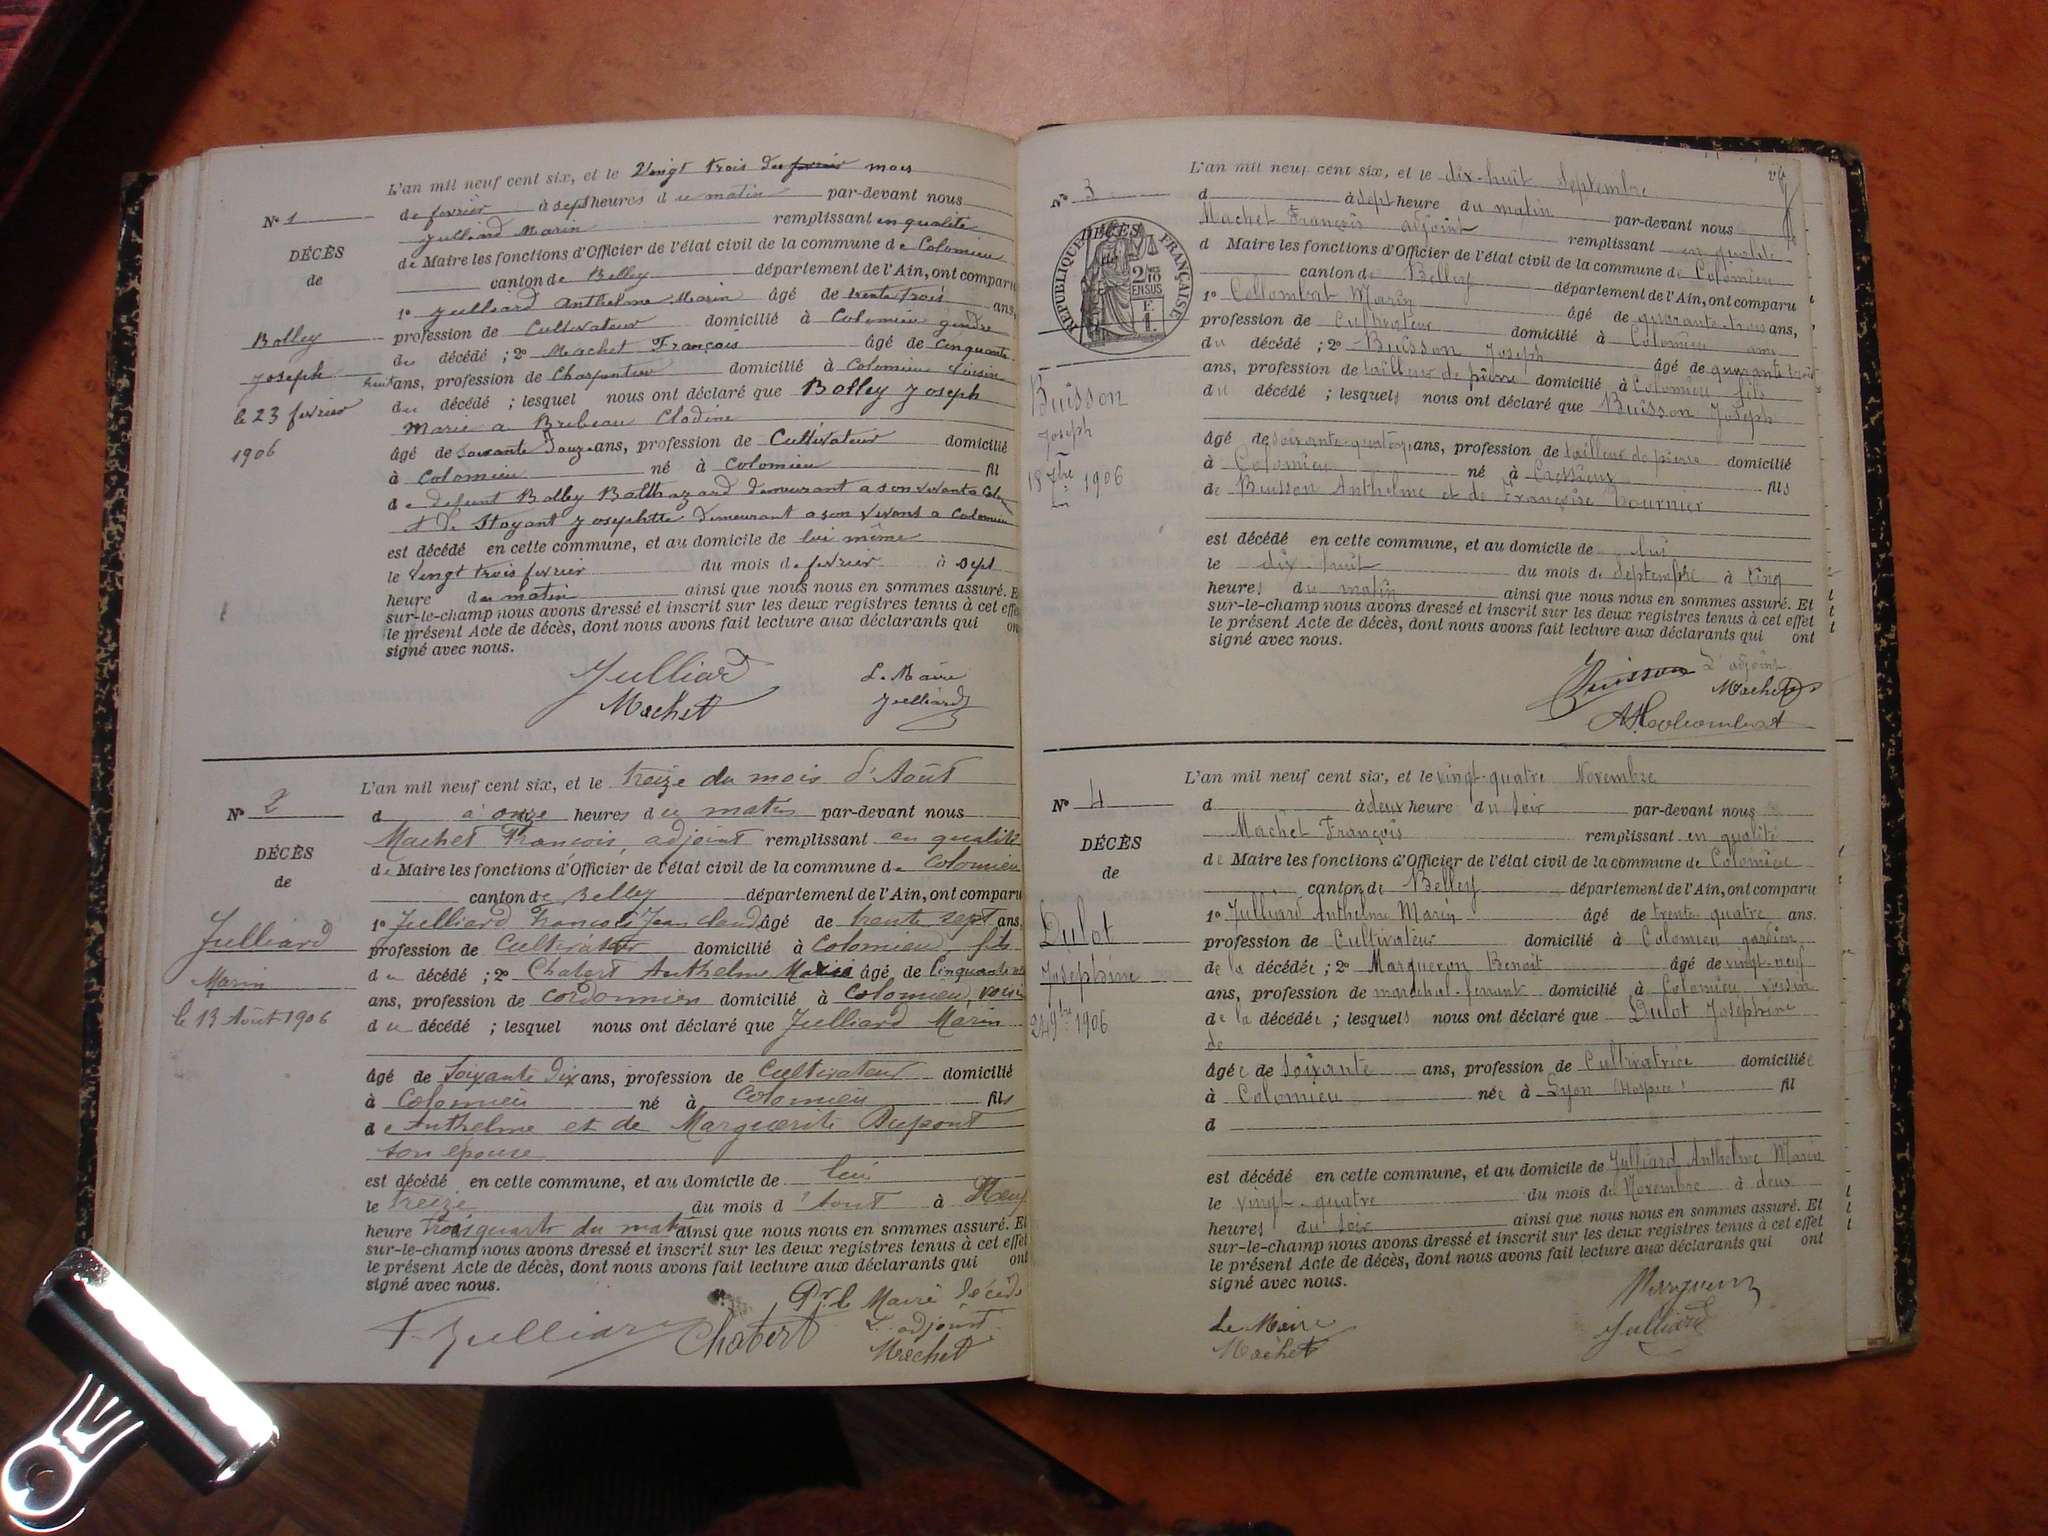 L'an mil neuf cent six, et le Vingt trois du fevrier mois
N° 1 de fevrier à sept heures du matin par-devant nous
Julliard Marin remplissant en qualité
DÉCÈS
de Maire les fonctions d'Officier de l'état civil de la commune de Colomieu
de
canton de Belley département de l'Ain, ont comparu
1° Julliard Anthelme Marin âgé de trente trois ans,
Bolley
profession de Cultivateur domicilié à Colomieu gendre
du décédé ; 2° Machet François âgé de cinquante
Joseph
huit ans, profession de Charpentier domicilié à Colomieu Voisin
le 23 fevrier
du décédé ; lesquel nous ont déclaré que Bolley Joseph
1906
Marie a Clodine
âgé de soixante douze ans, profession de Cultivateur domicilié
à Colomieu né à Colomieu fil
de defunt Bolley Balthazard demeurant a son vivant a Colomieu
et de Stoyant Josephtte demeurant a son vivant a Colomieu
est décédé en cette commune, et au domicile de lui même
le Vingt trois fevrier du mois de fevrier à sept
heure du matin ainsi que nous nous en sommes assuré. Et
sur-le-champ nous avons dressé et inscrit sur les deux registres tenus à cet effet
le présent Acte de décès, dont nous avons fait lecture aux déclarants qui ont
signé avec nous.
Julliard
Machet
Le Maire
Julliard
L'an mil neuf cent six, et le treize du mois d'Août
N° 2
d à onze heures du matin par-devant nous
Machet François, adjoint remplissant en qualité
DÉCÈS
de Maire les fonctions d'Officier de l'état civil de la commune de Colomieu
de
canton de Belley département de l'Ain, ont comparu
1° Julliard François Jean claude âgé de trente sept ans
Julliard
profession de Cultivateur domicilié à Colomieu, fils
du décédé ; 2° Chabert Anthelme Marie âgé de Cinquante
Marin
ans, profession de Cordonnier domicilié à Colomieu, voisin
le 13 Août 1906
du décédé ; lesquel nous ont déclaré que Julliard Marin
âgé de soixante dix ans, profession de Cultivateur domicilié
à Colomieu né à Colomieu fils
de Anthelme et de Marguerite Dupont
son épouse
est décédé en cette commune, et au domicile de lui
le treize du mois d'Aout à Neuf
heure trois quarts du matin ainsi que nous nous en sommes assuré. Et
sur-le-champ nous avons dressé et inscrit sur les deux registres tenus à cet effet
le présent Acte de décès, dont nous avons fait lecture aux déclarants qui ont
signé avec nous.
F. Julliard Chabert
Pr le Maire décédé
L'adjoint
Machet
L'an mil neuf cent six, et le dix-huit Septembre
N° 3
d à sept heure du matin par-devant nous
Machet François adjoint remplissant en qualité
DÉCÈS
de
RÉPUBLIQUE FRANÇAISE
2/10 EN SUS
1 F.
d Maire les fonctions d'Officier de l'état civil de la commune de Colomieu
canton de Belley département de l'Ain, ont comparu
1° Collombat Marin âgé de quarante-trois ans,
profession de Cultivateur domicilié à Colomieu ami
du décédé ; 2° Buisson Joseph âgé de quarante trois
ans, profession de tailleur de pierre domicilié à Colomieu fils
Buisson
Joseph
18 7bre 1906
du décédé ; lesquels nous ont déclaré que Buisson Joseph
âgé de soixante-quatorze ans, profession de tailleur de pierre domicilié
à Colomieu né à Cressieux fils
de Buisson Anthelme et de Françoise Tournier
est décédé en cette commune, et au domicile de lui
le dix huit du mois de Septembre à cinq
heures du matin ainsi que nous nous en sommes assuré. Et
sur-le-champ nous avons dressé et inscrit sur les deux registres tenus à cet effet
le présent Acte de décès, dont nous avons fait lecture aux déclarants qui ont
signé avec nous.
Buisson
L'adjoint
Machet
L'an mil neuf cent six, et le vingt-quatre Novembre
N° 4
d à deux heure du soir par-devant nous
Machet François remplissant en qualité
DÉCÈS
de Maire les fonctions d'Officier de l'état civil de la commune de Colomieu
de
canton de Belley département de l'Ain, ont comparu
1° Julliard Anthelme Marin âgé de trente quatre ans.
Dulot
profession de Cultivateur domicilié à Colomieu gardien
de la décédée ; 2° Margueron Benoit âgé de vingt-neuf
Joséphine
ans, profession de maréchal-ferrant domicilié à Colomieu voisin
24 9bre 1906
de la décédée ; lesquels nous ont déclaré que Dulot Joséphine
de
âgée de soixante ans, profession de Cultivatrice domiciliée
à Colomieu née à Lyon (Hospice) fil
d
est décédé en cette commune, et au domicile de Julliard Anthelme Marin
le vingt-quatre du mois de Novembre à deux
heures du soir ainsi que nous nous en sommes assuré. Et
sur-le-champ nous avons dressé et inscrit sur les deux registres tenus à cet effet
le présent Acte de décès, dont nous avons fait lecture aux déclarants qui ont
signé avec nous.
Margueron
Le Maire
Machet
Julliard